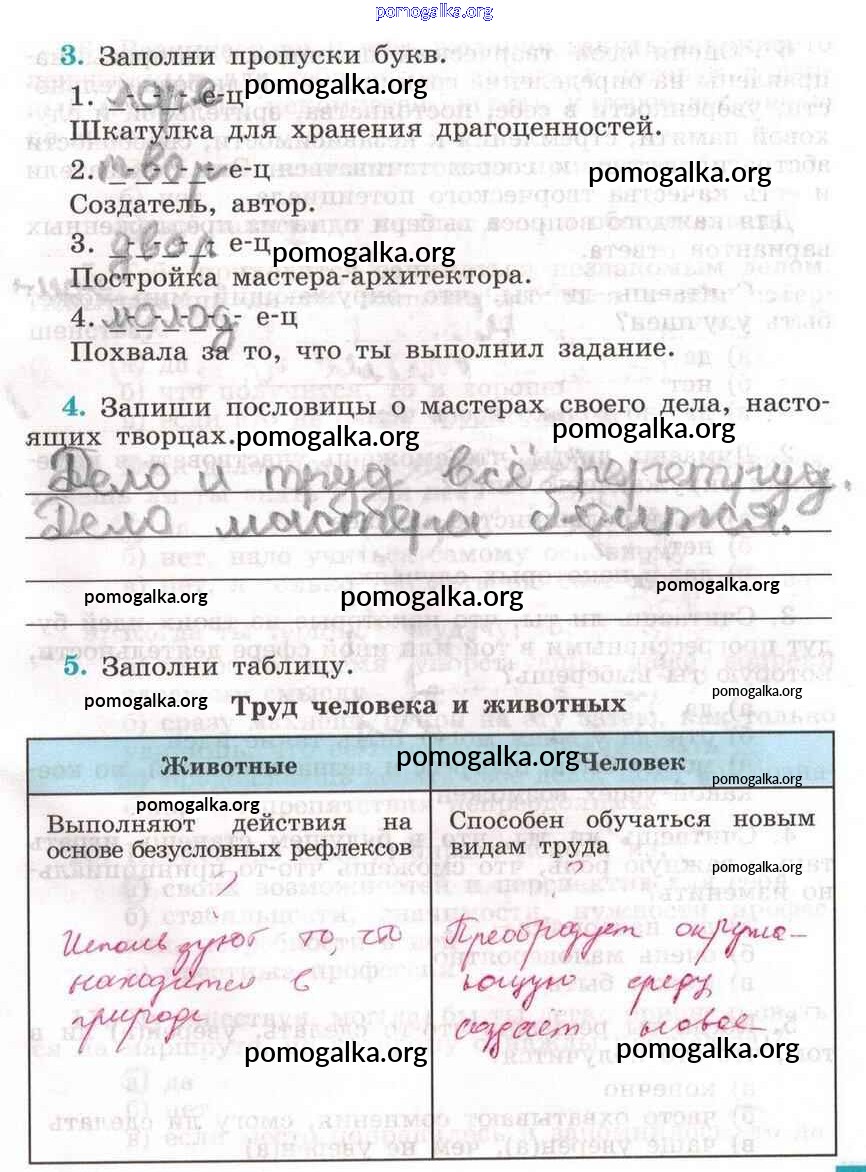 pomogalka.org
3. Заполни пропуски букв.
1. л-а-р- е-ц pomogalka.org
Шкатулка для хранения драгоценностей.
2. т-в-о-р- е-ц pomogalka.org
Создатель, автор.
3. д-в-о-р- е-ц pomogalka.org
Постройка мастера-архитектора.
4. м-о-л-о-д- е-ц
Похвала за то, что ты выполнил задание.
4. Запиши пословицы о мастерах своего дела, насто-
ящих творцах. pomogalka.org pomogalka.org
Дело и труд всё перетрут.
Дела мастера боится.
pomogalka.org pomogalka.org pomogalka.org
5. Заполни таблицу.
pomogalka.org Труд человека и животных pomogalka.org
Животные pomogalka.org Человек
pomogalka.org pomogalka.org
Выполняют действия на
основе безусловных рефлексов
Используют то, что
находится в
природе
pomogalka.org
Способен обучаться новым
видам труда
pomogalka.org
Преобразует окружа-
ющую среду
создаёт новое
pomogalka.org